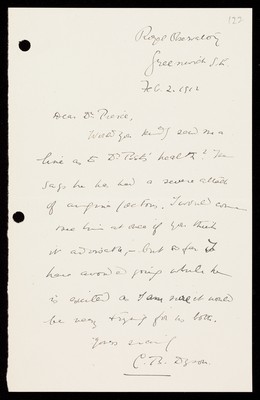 122
Royal Observatory
Greenwich S.E.
Feb. 2. 1912
Dear Dr Pierce,
Would you kindly send me a
line as to Dr Pett's health? You
say he has had a severe attack
of angina pectoris. I would come
see him at once if you think
it advisable, but so far I
have avoided going while he
is excited as I am sure it would
be very trying for us both.
Yours sincerely
C. B. Dyson